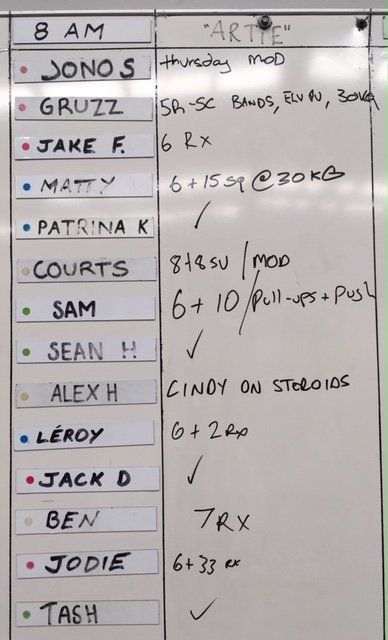 8 AM "ARTIE"
JONO S thursday MOD
GRUZZ 5R-SC BANDS, ELV PU, 30KG
JAKE F. 6 RX
MATTY 6+15 SQ @ 30 KG
PATRINA K ✓
COURTS 8+8 SU / MOD
SAM 6+10 / Pull-ups + Push
SEAN H ✓
ALEX H CINDY ON STEROIDS
LÉROY 6+2 RX
JACK D ✓
BEN 7 RX
JODIE 6+33 RX
TASH ✓